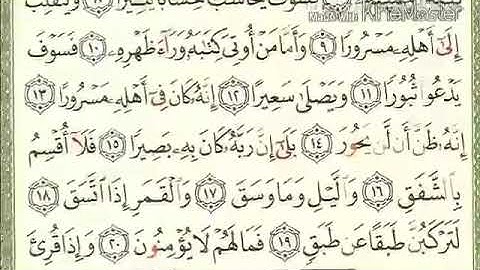 فَسَوْفَ يُحَاسَبُ حِسَابًا يَسِيرًا ۝٨ وَيَنقَلِبُ
Made with KINEMASTER
إِلَىٰٓ أَهْلِهِۦ مَسْرُورًا ۝٩ وَأَمَّا مَنْ أُوتِىَ كِتَٰبَهُۥ وَرَآءَ ظَهْرِهِۦ ۝١٠ فَسَوْفَ
يَدْعُوا۟ ثُبُورًا ۝١١ وَيَصْلَىٰ سَعِيرًا ۝١٢ إِنَّهُۥ كَانَ فِىٓ أَهْلِهِۦ مَسْرُورًا ۝١٣
إِنَّهُۥ ظَنَّ أَن لَّن يَحُورَ ۝١٤ بَلَىٰٓ إِنَّ رَبَّهُۥ كَانَ بِهِۦ بَصِيرًا ۝١٥ فَلَآ أُقْسِمُ
بِٱلشَّفَقِ ۝١٦ وَٱلَّيْلِ وَمَا وَسَقَ ۝١٧ وَٱلْقَمَرِ إِذَا ٱتَّسَقَ ۝١٨
لَتَرْكَبُنَّ طَبَقًا عَن طَبَقٍ ۝١٩ فَمَا لَهُمْ لَا يُؤْمِنُونَ ۝٢٠ وَإِذَا قُرِئَ